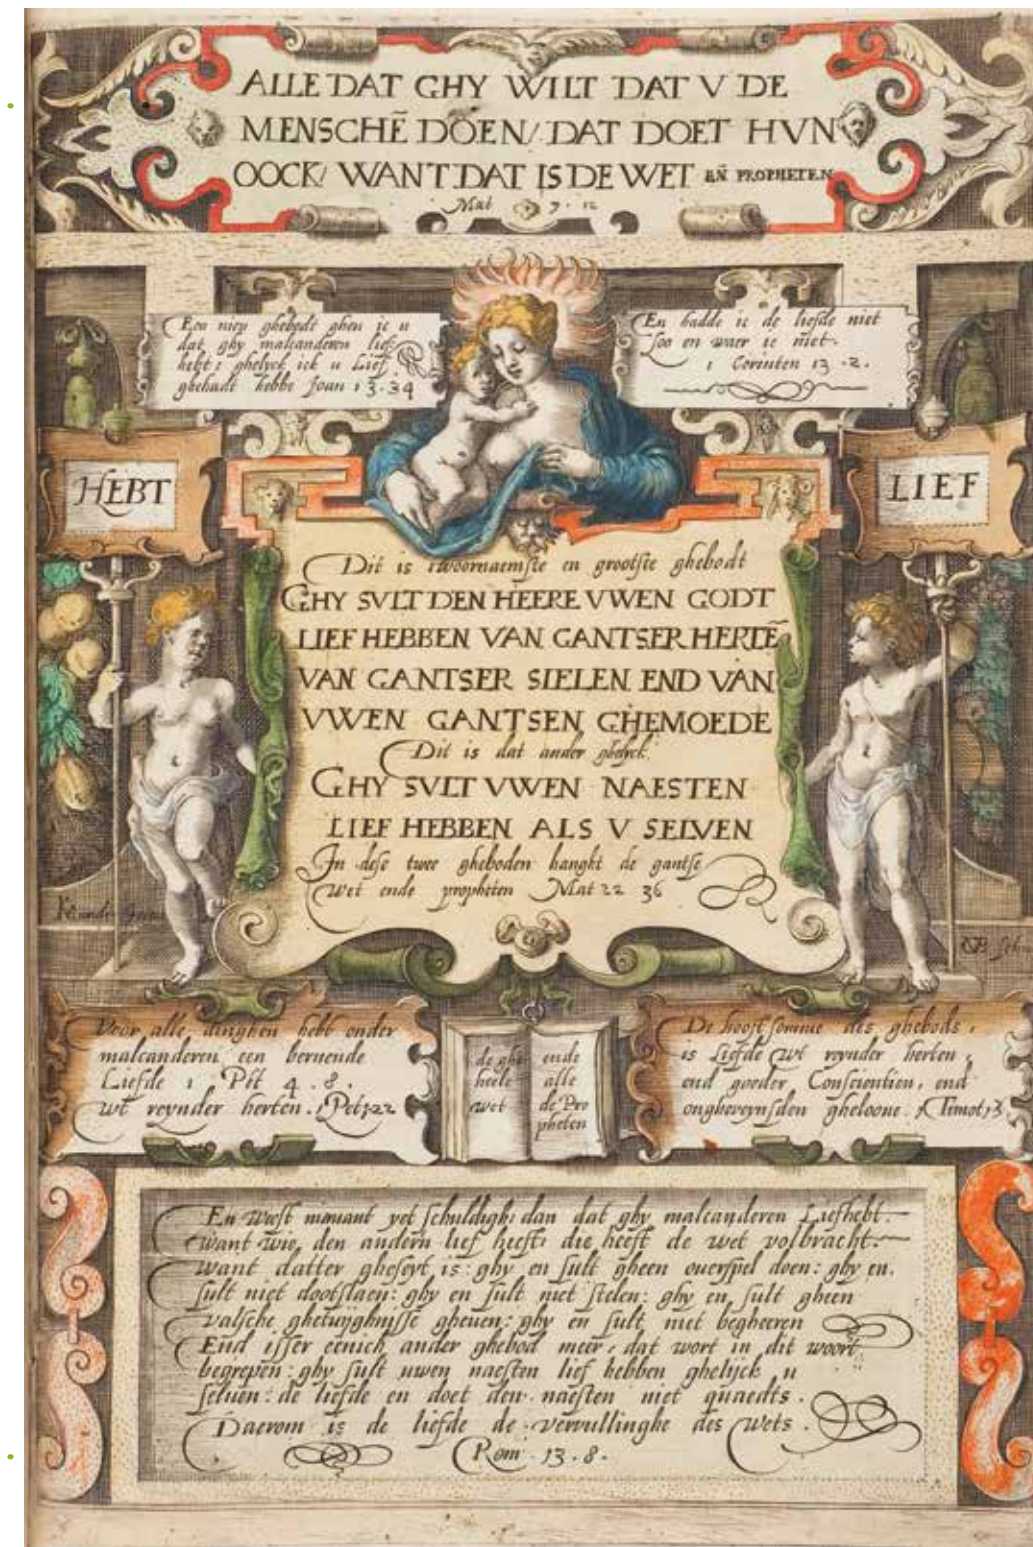 ALLE DAT GHY WILT DAT V DE
MENSCHE͂ DOEN/ DAT DOET HVN
OOCK/ WANT DAT IS DE WET EN̄ PROPHETEN
Mat 7.12
Een niew ghebodt ghen ic u
dat ghy malcanderen lief
hebt: ghelyck ick u Lief
ghehadt hebbe Joan 13.34
En hadde ic de liefde niet
soo en waer ic niet.
1 Corinten 13.2.
HEBT
LIEF
Dit is tvoornaemste en grootste ghebodt
GHY SVLT DEN HEERE VWEN GODT
LIEF HEBBEN VAN GANTSER HERTE͂
VAN GANTSER SIELEN END VAN
VWEN GANTSEN GHEMOEDE
Dit is dat ander ghelyck.
GHY SVLT VWEN NAESTEN
LIEF HEBBEN ALS V SELVEN
In dese twee gheboden hanght de gantse
Wet ende propheten Mat 22 36
Voor alle dinghen hebt onder
malcanderen een bernende
Liefde 1 Pet 4.8.
wt reynder herten. 1 Pet 1 22
de ghe
heele
wet
ende
alle
de Pro
pheten
De hooft somme des ghebods,
is Liefde wt reynder herten,
end goeder Conscientien, end
ongheveynsden gheloove. 1 Timot 1 3
En weest niemant yet schuldigh: dan dat ghy malcanderen Liefhebt.
want wie den andern lief heeft: die heeft de wet volbracht.
want datter gheseyt is: ghy en sult gheen overspel doen: ghy en
sult niet dootslaen: ghy en sult niet stelen: ghy en sult gheen
valsche ghetuyghnisse gheven: ghy en sult niet begheeren
End isser eenich ander ghebod meer, dat wort in dit woort
begrepen: ghy sult uwen naesten lief hebben ghelijck u
selven: de liefde en doet den naesten niet quaedts.
Daerom is de liefde de vervullinghe des Wets.
Rom. 13.8.